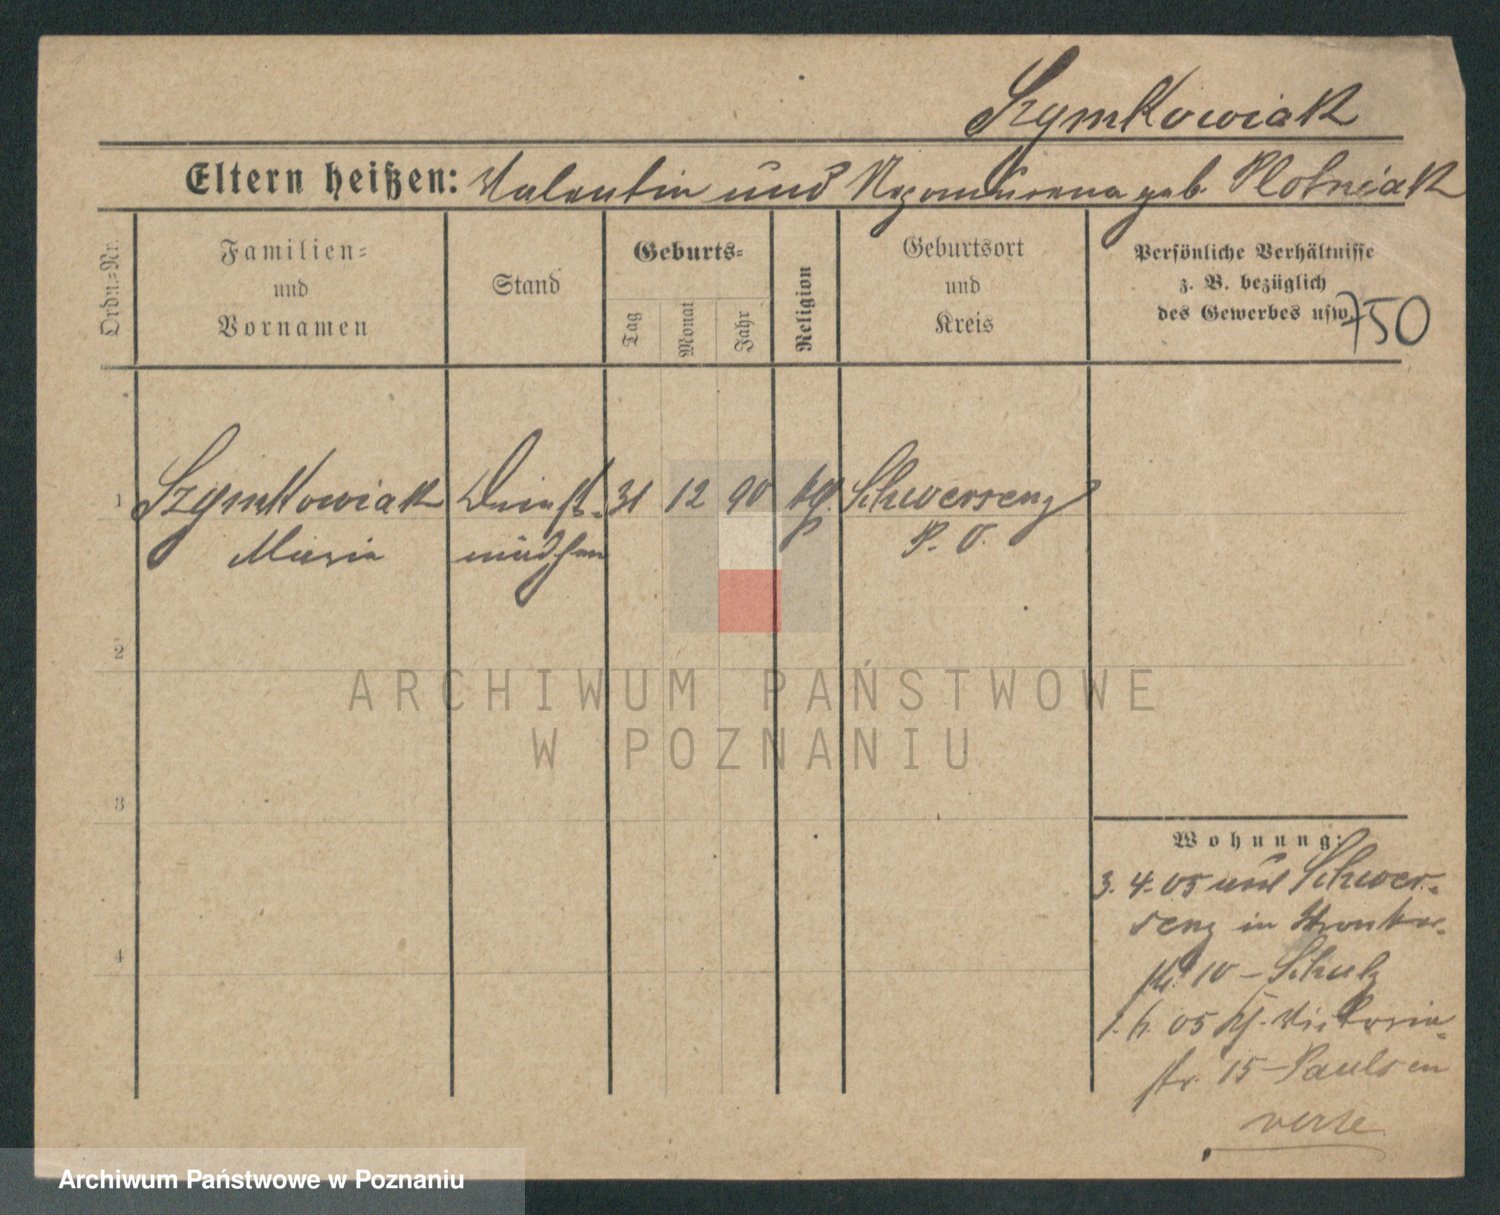 Szymkowiak
Eltern heißen: Valentin und Nepomucena geb. Plotniak
Ordn.=Nr.
Familien=
und
Vornamen
Stand
Geburts=
Tag
Monat
Jahr
Religion
Geburtsort
und
Kreis
Persönliche Verhältnisse
z. B. bezüglich
des Gewerbes usw.
750
1
Szymkowiak
Maria
Dienst-
mädchen
31
12
90
kg.
Schwersenz
P. O.
2
3
4
ARCHIWUM PAŃSTWOWE
W POZNANIU
Wohnung:
3. 4. 05 aus Schwer-
senz in
10 – Schulz
05 Victoria-
str. 15 – Paulsen
verte
Archiwum Państwowe w Poznaniu